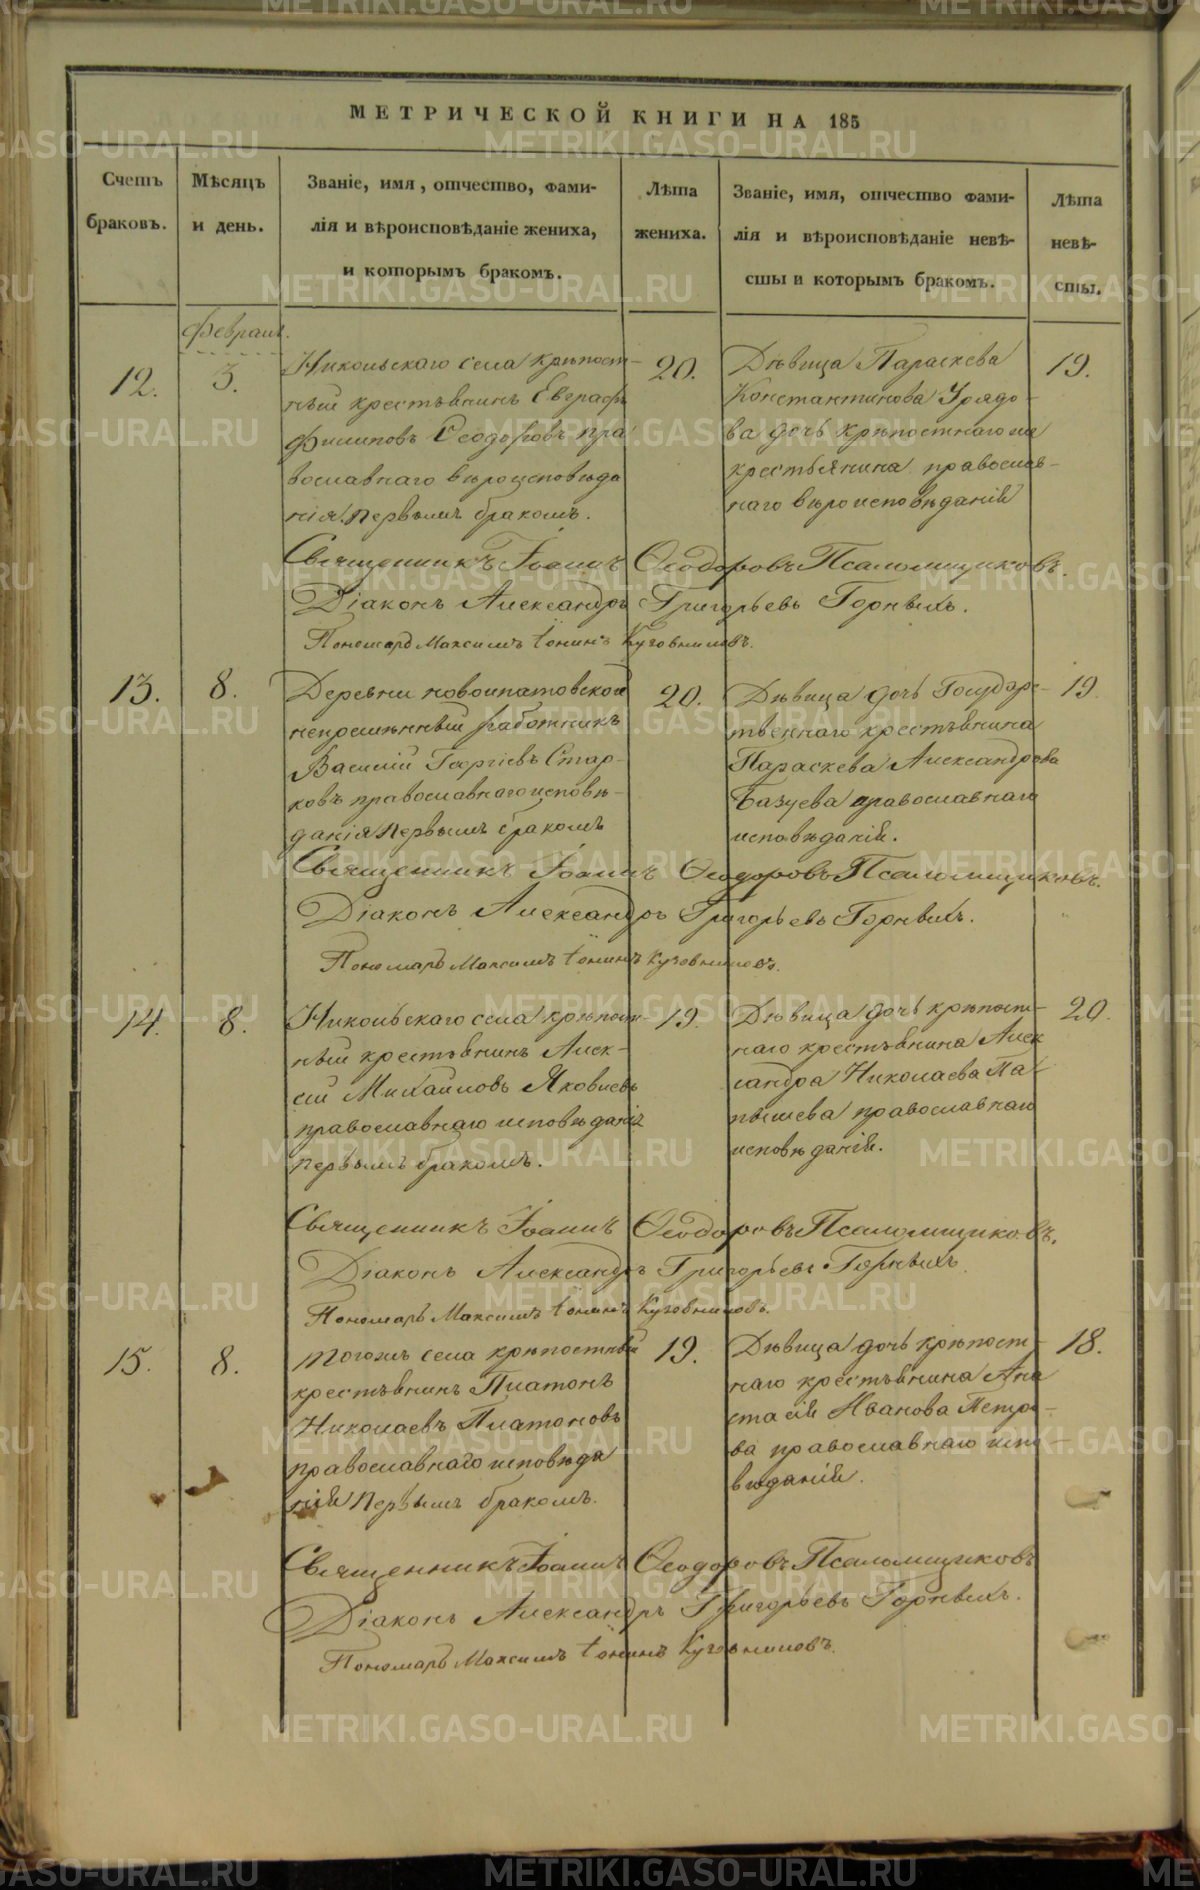 МЕТРИЧЕСКОЙ КНИГИ НА 185
Счетъ браковъ.
Мѣсяцъ и день.
Званіе, имя, отчество, фами-
лія и вѣроисповѣданіе жениха,
и которымъ бракомъ.
Лѣта жениха.
Званіе, имя, отчество фами-
лія и вѣроисповѣданіе невѣ-
сты и которымъ бракомъ.
Лѣта невѣ-
сты.
Февраль.
12.
3.
Никольскаго села крѣпост-
ный крестьянинъ Евграфъ
Филиповъ Ѳеодоровъ пра
вославнаго вѣроисповѣда
нія. первымъ бракомъ.
20.
Дѣвица Параскева
Константинова Урядо-
ва дочь крѣпостнаго
крестьянина православ-
наго вѣроисповѣданія
19.
Священникъ Іоаннъ Ѳеодоровъ Псаломщиковъ.
Діаконъ Александръ Григорьевъ Горныхъ.
Пономарь Максимъ Іонинъ Куговниковъ.
13.
8.
Деревни новоипатовской
непремѣнный работникъ
Василій Георгіевъ Стар-
ковъ православнаго исповѣ-
данія первымъ бракомъ
20.
Дѣвица дочь Государс-
твеннаго крестьянина
Параскева Александрова
Базуева православнаго
исповѣданія.
19
Священникъ Іоаннъ Ѳеодоровъ Псаломщиковъ.
Діаконъ Александръ Григорьевъ Горныхъ.
Пономарь Максимъ Іонинъ Куговниковъ.
14.
8.
Никольскаго села крѣпост-
ный крестьянинъ Алек-
сѣй Михайловъ Яковлевъ
православнаго исповѣданія
первымъ бракомъ.
19.
Дѣвица дочь крѣпост-
наго крестьянина Алек
сандра Николаева Па-
пышева православнаго
исповѣданія.
20.
Священникъ Іоаннъ Ѳеодоровъ Псаломщиковъ.
Діаконъ Александръ Григорьевъ Горныхъ
Пономарь Максимъ Іонинъ Куговниковъ.
15.
8.
тогожъ села крѣпостный
крестьянинъ Платонъ
Николаевъ Платоновъ
православнаго исповѣда
нія первымъ бракомъ.
19.
Дѣвица дочь крѣпост-
наго крестьянина Ана
стасія Иванова Петро-
ва православнаго испо-
вѣданія.
18.
Священникъ Іоаннъ Ѳеодоровъ Псаломщиковъ
Діаконъ Александръ Григорьевъ Горныхъ.
Пономарь Максимъ Іонинъ Куговниковъ.
METRIKI.GASO-URAL.RU